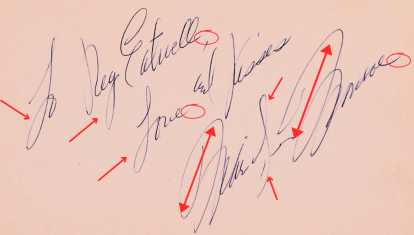 To Reg Eatwell
Love and Kisses
Marilyn Monroe